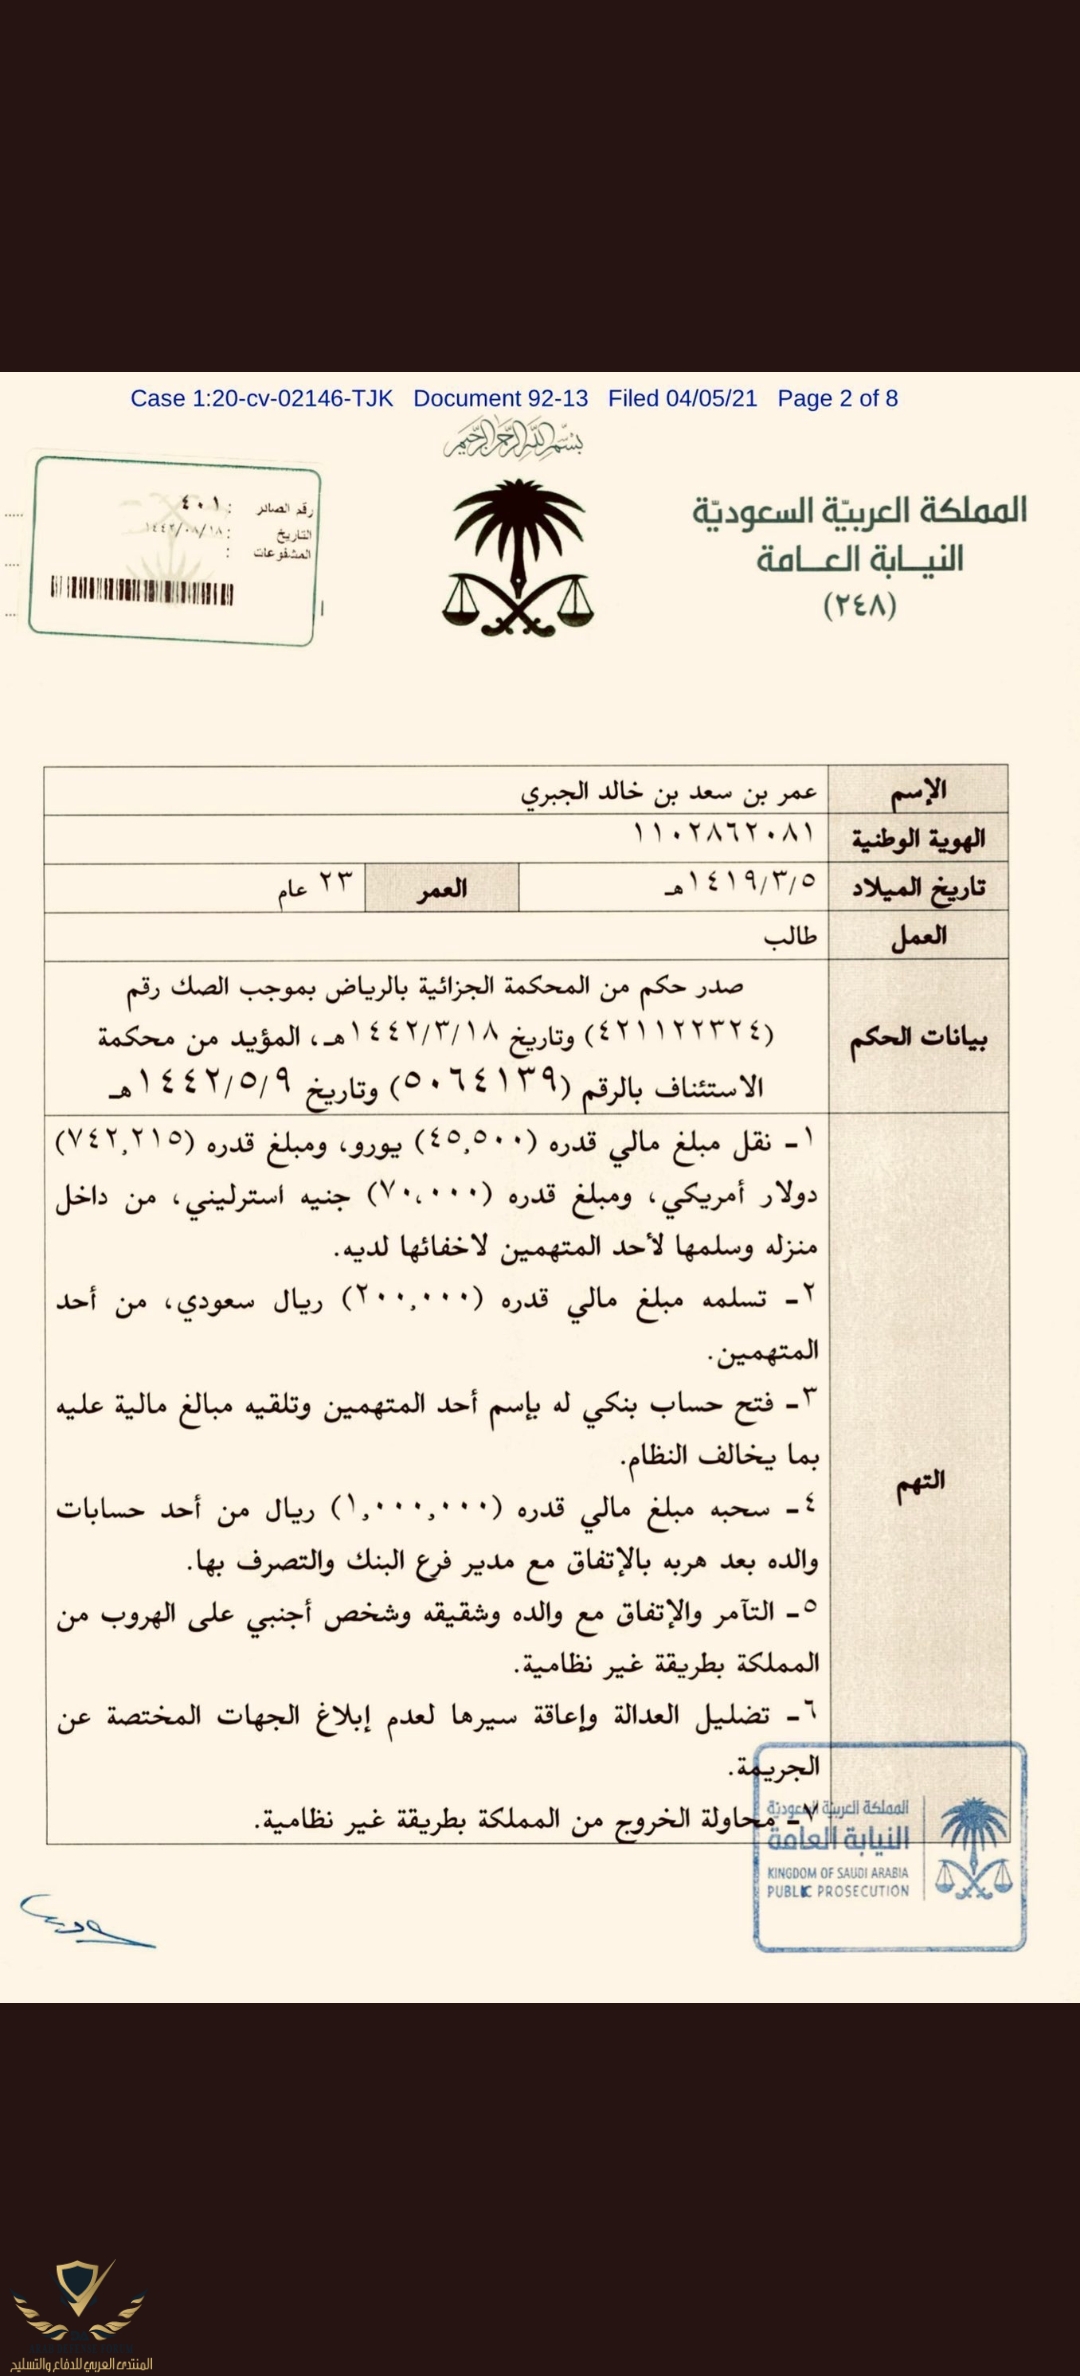 Case 1:20-cv-02146-TJK Document 92-13 Filed 04/05/21 Page 2 of 8
بسم الله الرحمن الرحيم
المملكة العربية السعودية
النيابة العامة
(٢٤٨)
رقم الصادر : ٤٠١
التاريخ : ١٤٤٢/٠٨/١٨
المشفوعات :
الإسم عمر بن سعد بن خالد الجبري
الهوية الوطنية ١١٠٢٨٦٢٠٨١
تاريخ الميلاد ١٤١٩/٣/٥هـ العمر ٢٣ عام
العمل طالب
بيانات الحكم
صدر حكم من المحكمة الجزائية بالرياض بموجب الصك رقم
(٤٢١١٢٢٣٢٤) وتاريخ ١٤٤٢/٣/١٨هـ، المؤيد من محكمة
الاستئناف بالرقم (٥٠٦٤١٣٩) وتاريخ ١٤٤٢/٥/٩هـ
التهم
١- نقل مبلغ مالي قدره (٤٥,٥٠٠) يورو، ومبلغ قدره (٧٤٢,٢١٥)
دولار أمريكي، ومبلغ قدره (٧٠,٠٠٠) جنيه استرليني، من داخل
منزله وسلمها لأحد المتهمين لاخفائها لديه.
٢- تسلمه مبلغ مالي قدره (٢٠٠,٠٠٠) ريال سعودي، من أحد
المتهمين.
٣- فتح حساب بنكي له بإسم أحد المتهمين وتلقيه مبالغ مالية عليه
بما يخالف النظام.
٤- سحبه مبلغ مالي قدره (١,٠٠٠,٠٠٠) ريال من أحد حسابات
والده بعد هربه بالإتفاق مع مدير فرع البنك والتصرف بها.
٥- التآمر والإتفاق مع والده وشقيقه وشخص أجنبي على الهروب من
المملكة بطريقة غير نظامية.
٦- تضليل العدالة وإعاقة سيرها لعدم إبلاغ الجهات المختصة عن
الجريمة.
٧- محاولة الخروج من المملكة بطريقة غير نظامية.
المملكة العربية السعودية
النيابة العامة
KINGDOM OF SAUDI ARABIA
PUBLIC PROSECUTION
المنتدى العربي للدفاع والتسليح